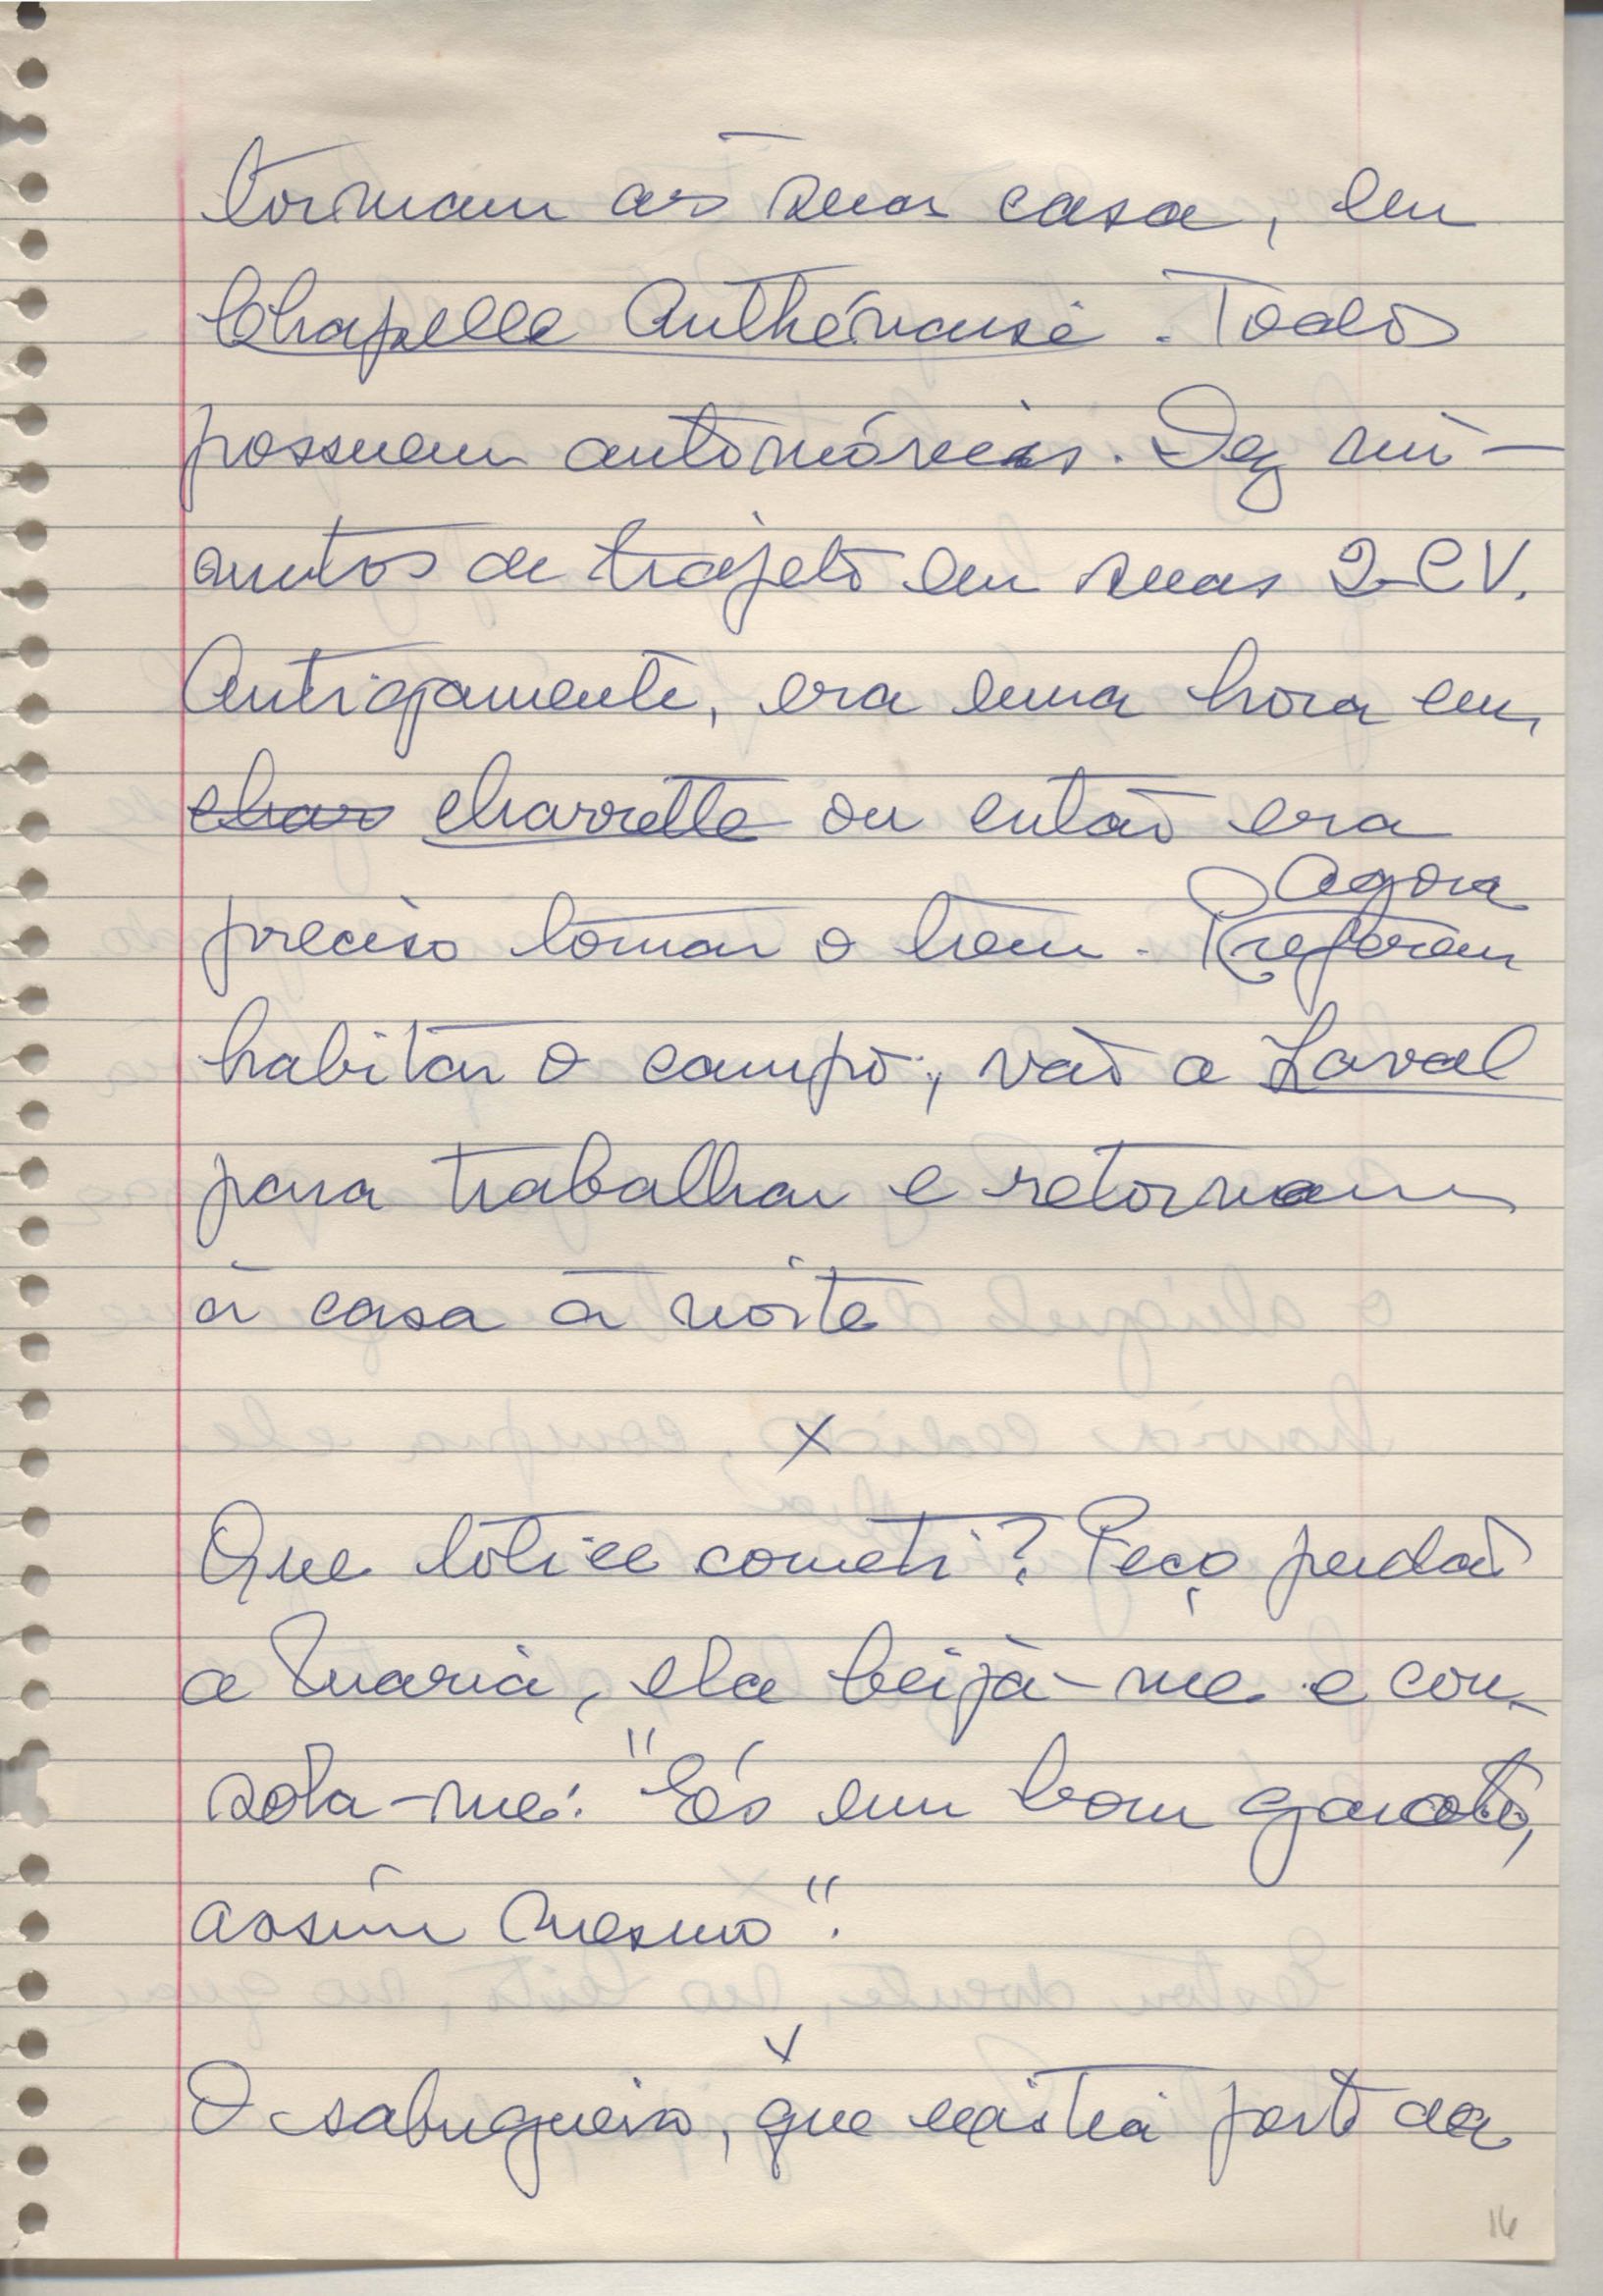 tornam as suas casa, em
Chapelle Anthénaise. Todos
possuem automóveis. Dez mi-
nutos de trajeto em suas 2 CV.
Antigamente, era uma hora em
char charrette ou então era
agora
preciso tomar o trem. Preferem
habitar o campo; vão a Laval
para trabalhar e retornam
à casa à noite
x
Que tolice cometi? Peço perdão
a Maria, ela beija-me e con-
sola-me: "És um bom garoto,
assim mesmo".
x
O sabugueiro, que existia perto da
16